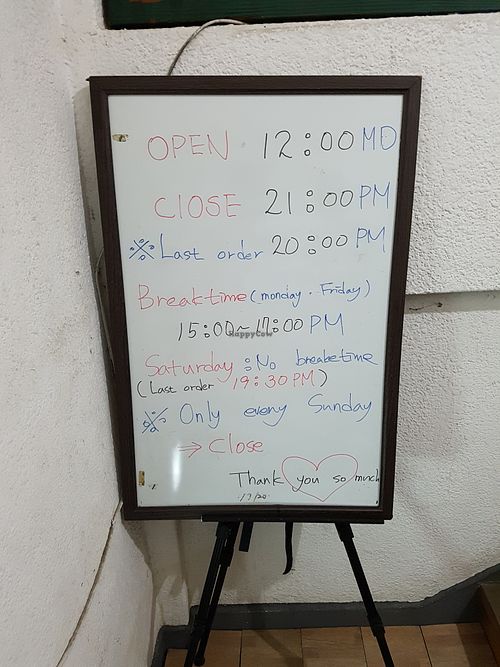 OPEN 12:00 MD
CLOSE 21:00 PM
※ Last order 20:00 PM
Breaktime (monday . Friday)
15:00~17:00 PM
HappyCow
Saturday : No breaketime
(Last order 19:30 PM)
※ Only every Sunday
⇒ Close
Thank you so much